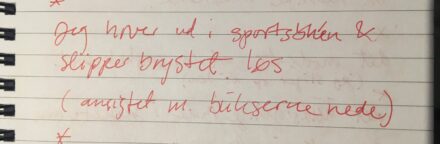 *
Jeg hiver ud i sportsbhen &
slipper brystet løs
(ansigtet m. bukserne nede)
*